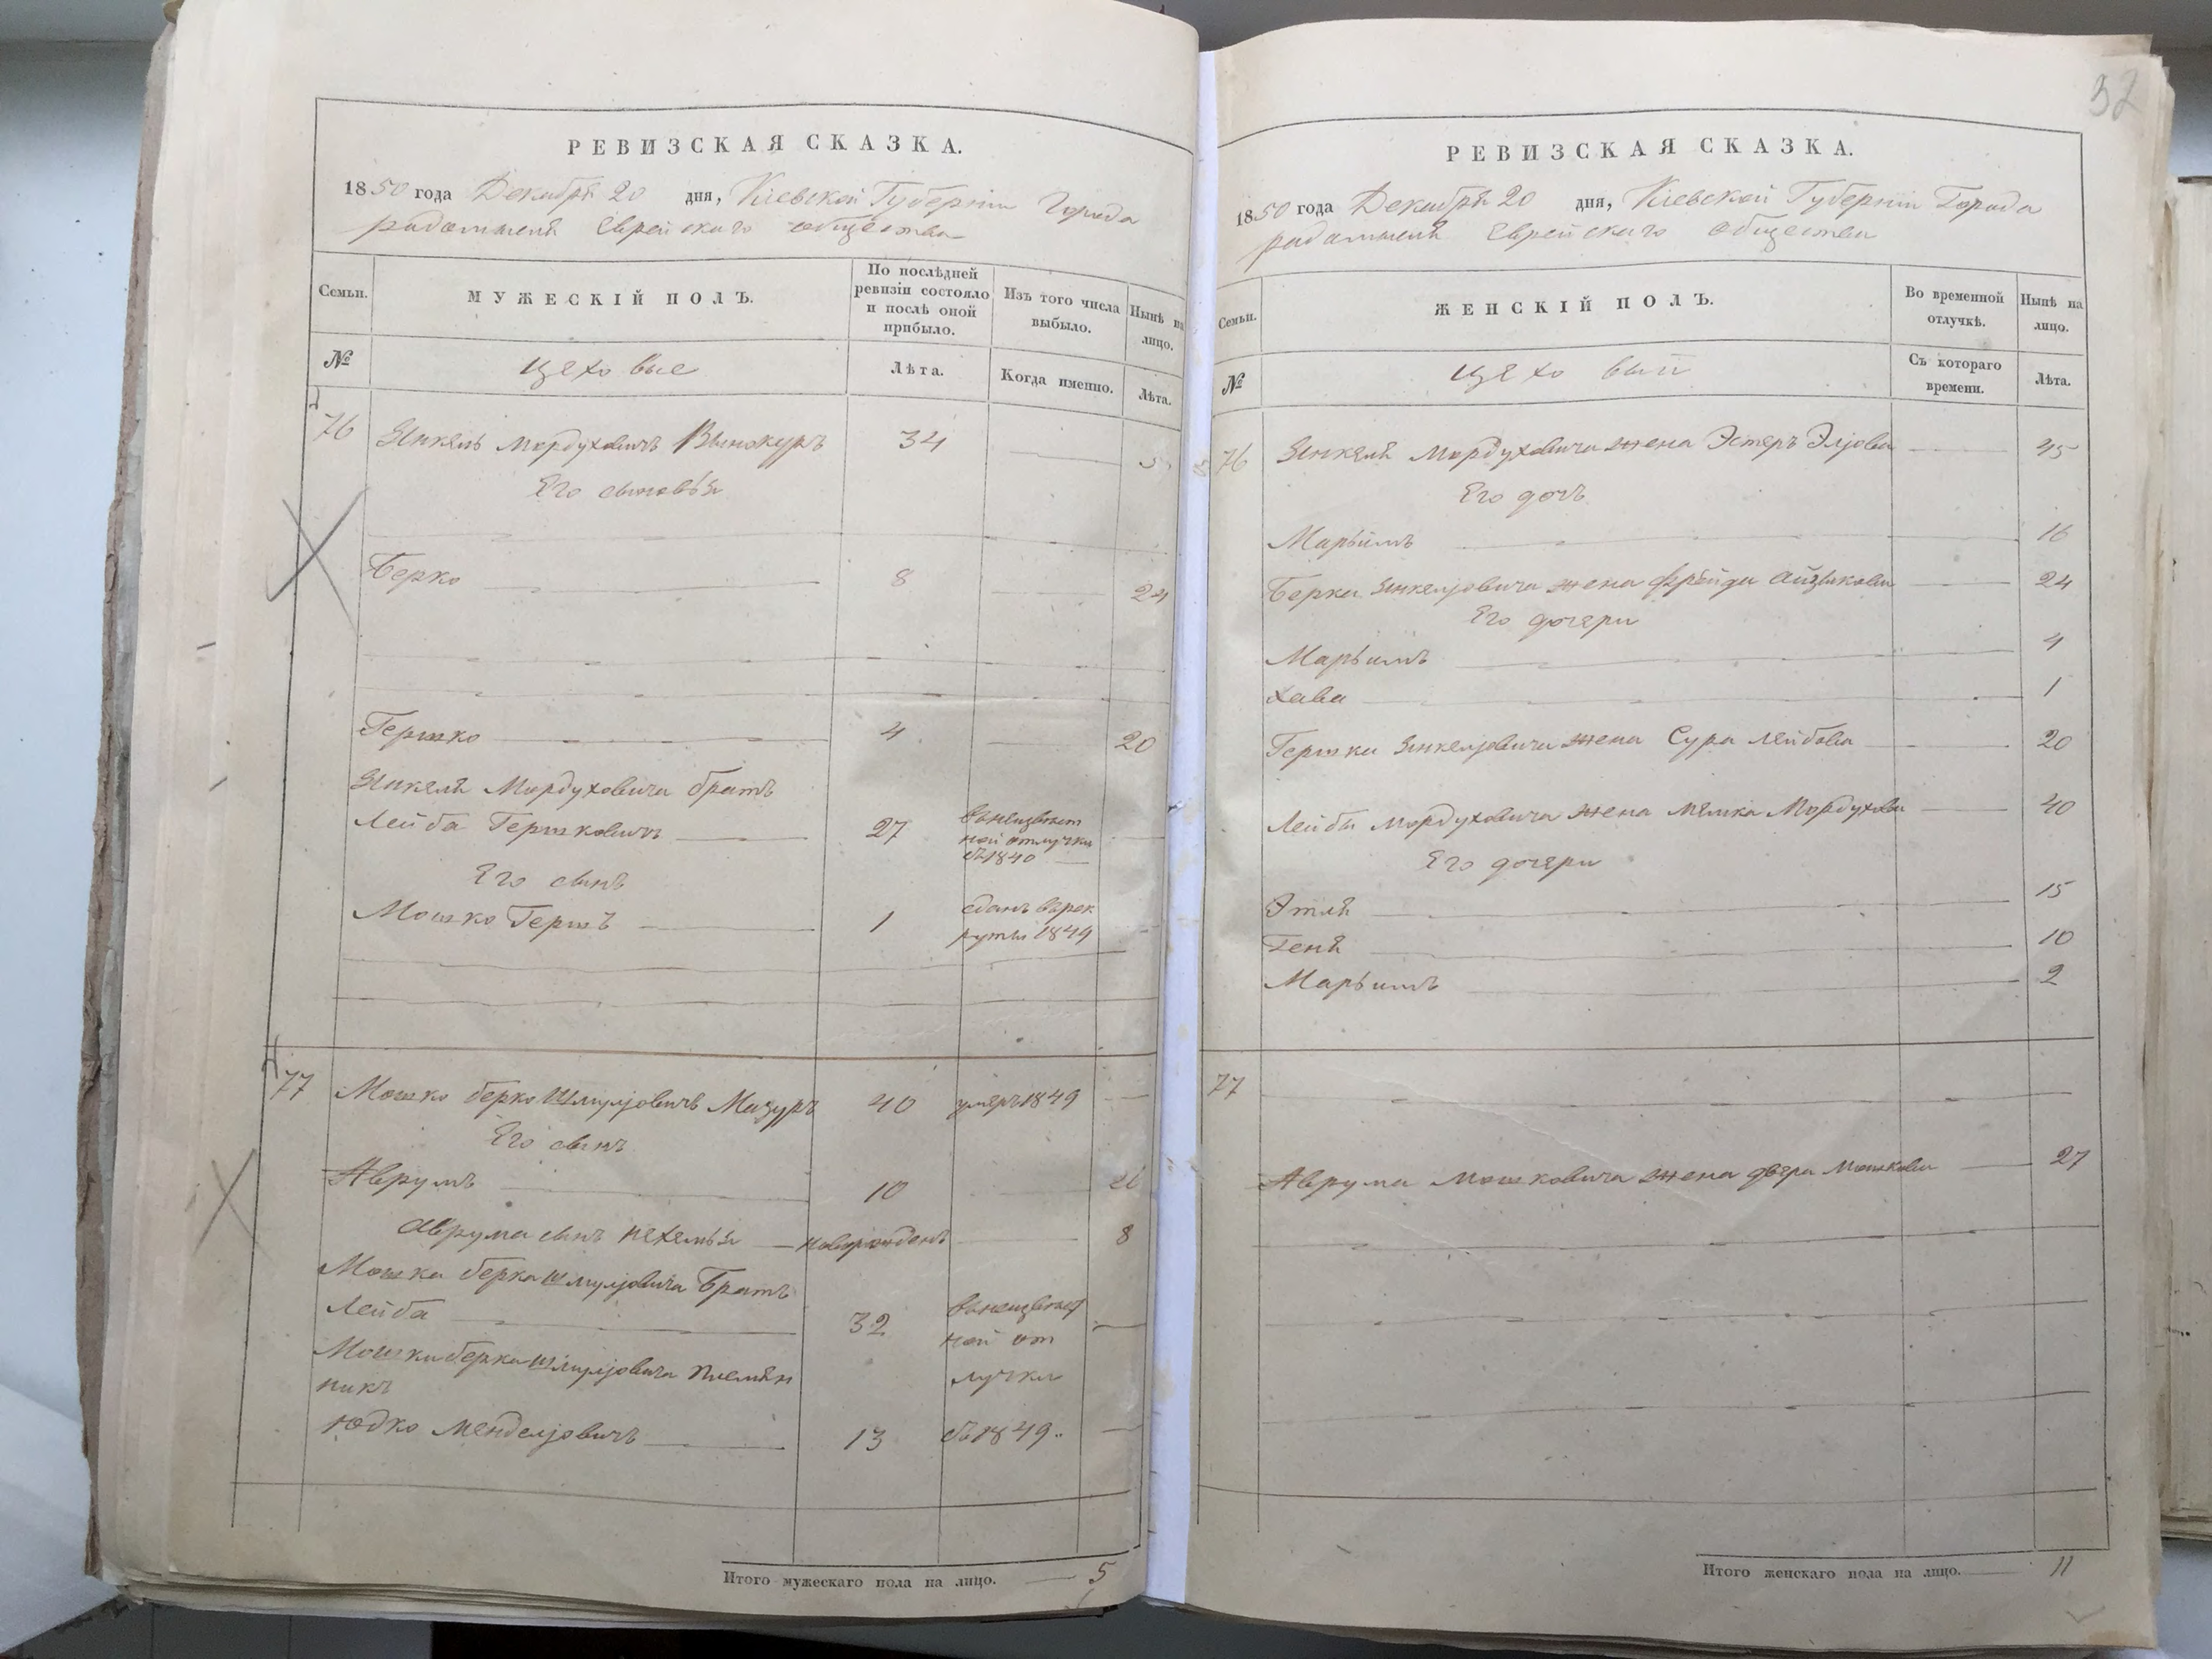 32
РЕВИЗСКАЯ СКАЗКА.
1850 года Декабря 20 дня, Кіевской Губерніи Города
радомысля Еврейскаго общества
Семьи.
МУЖЕСКІЙ ПОЛЪ.
По послѣдней ревизіи состояло и послѣ оной прибыло.
Изъ того числа выбыло.
Нынѣ на лицо.
№
цеховые
Лѣта.
Когда именно.
Лѣта.
76 Янкель Мордуховичъ Винокуръ 34
Его сыновья
Берко 8 24
Гершко 4 20
Янкеля Мордуховича братъ
Лейба Гершковичъ 27 въ неизвѣст
ной отлучки
съ 1840
Его сынъ
Мошко Гершъ 1 сданъ въ рек
руты 1849
77 Мошко берко Шмулјовичъ Мазуръ 40 умеръ 1849
Его сынъ
Аврумъ 10 26
Аврума сынъ Нехемья новорожденъ 8
Мошка берка Шмулјовича братъ
Лейба 32 въ неизвѣст
ной от
лучки
Мошка берка Шмулјовича племян
никъ
Юдко Менделјовичъ 13 съ 1849
Итого мужескаго пола на лицо. 5
РЕВИЗСКАЯ СКАЗКА.
1850 года Декабря 20 дня, Кіевской Губерніи Города
радомысля Еврейскаго общества
Семьи.
ЖЕНСКІЙ ПОЛЪ.
Во временной отлучкѣ.
Нынѣ на лицо.
№
цеховыи
Съ котораго времени.
Лѣта.
76 Янкеля Мордуховича жена Эстеръ Элјова 45
Его дочь
Марьимъ 16
Берка Янкелјовича жена Фрейда Айзикова 24
Его дочери
Марьимъ 4
Хава 1
Гершка Янкелјовича жена Сура Лейбова 20
Лейбы Мордуховича жена Мамка Мордухова 40
Его дочери
Этля 15
Геня 10
Марьимъ 2
77
Аврума Мошковича жена двера Мошкова 27
Итого женскаго пола на лицо. 11